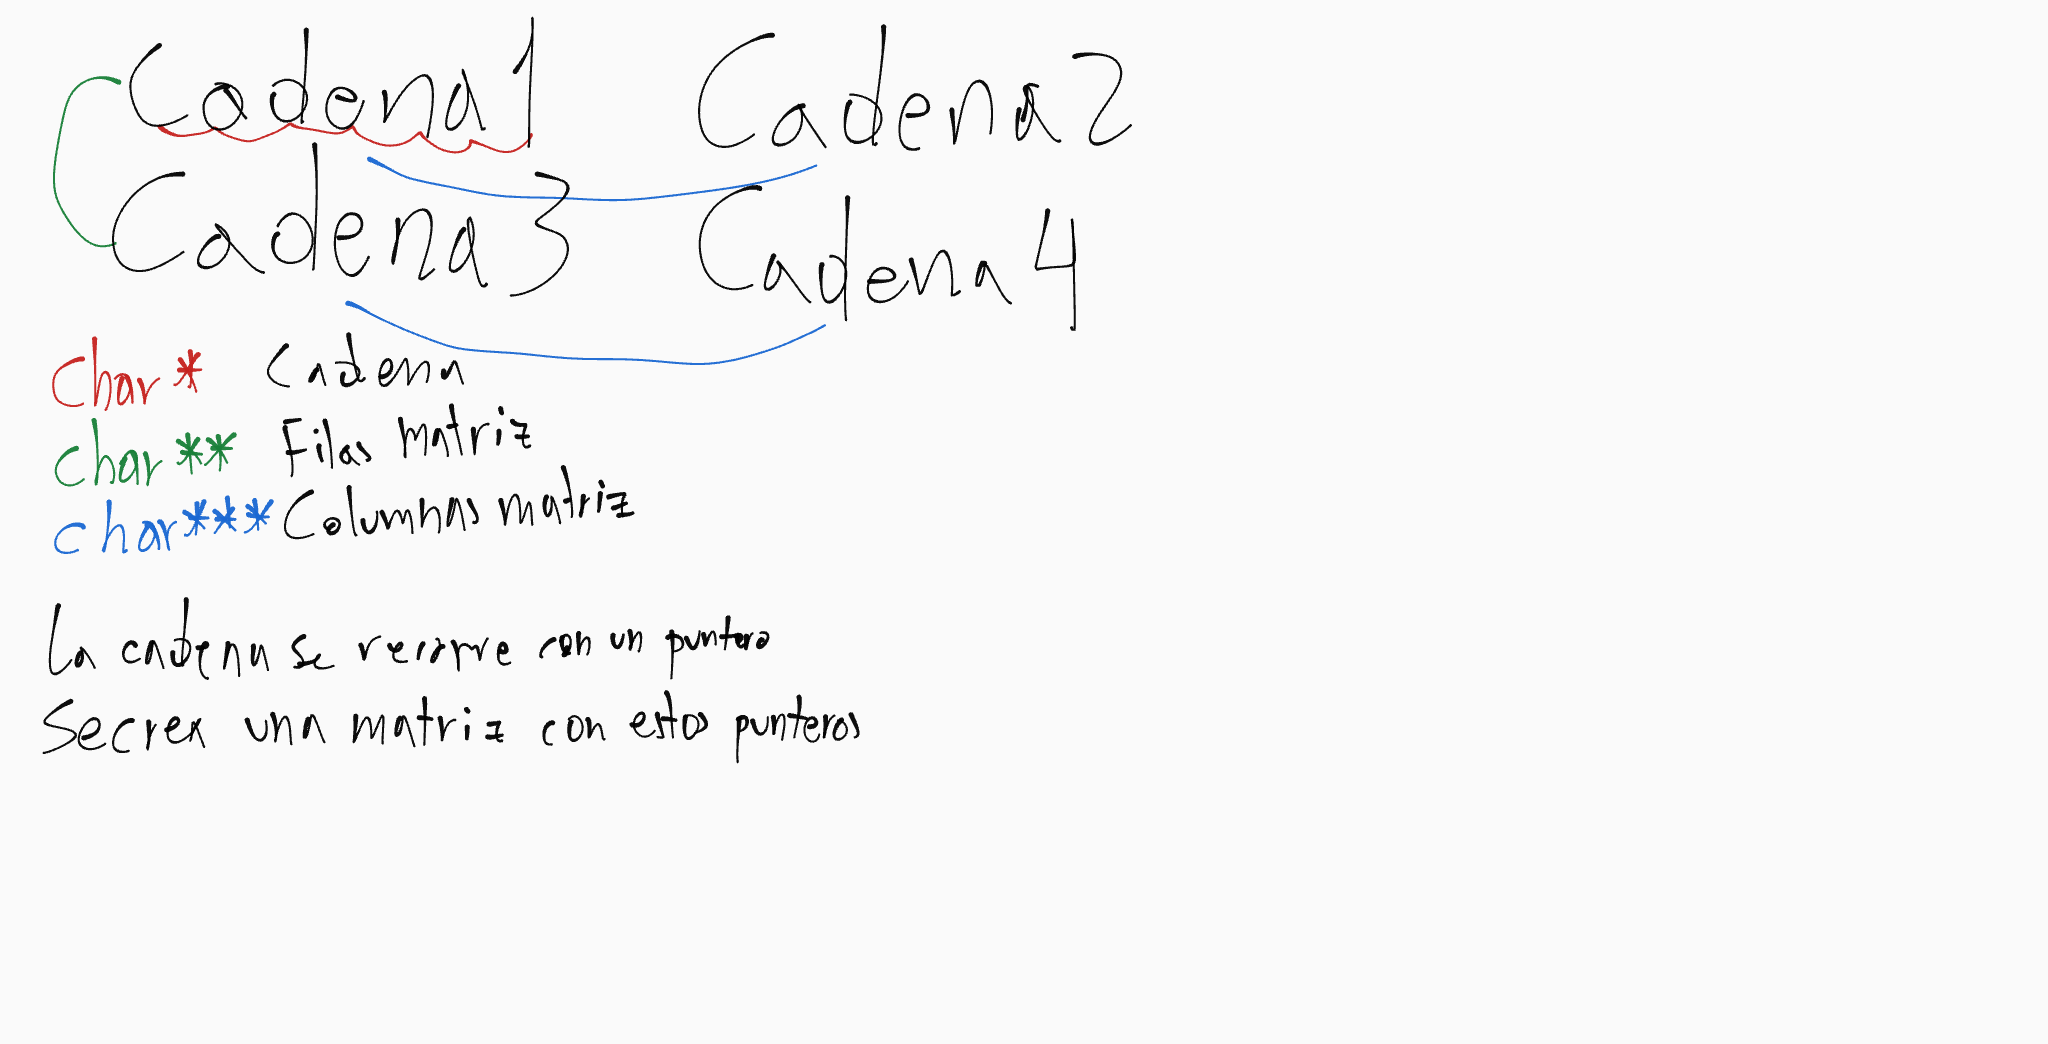 Cadena1 Cadena2
Cadena3 Cadena4
Char* Cadena
char** Filas Matriz
char*** Columnas matriz
La cadena se recorre con un puntero
Se crea una matriz con estos punteros